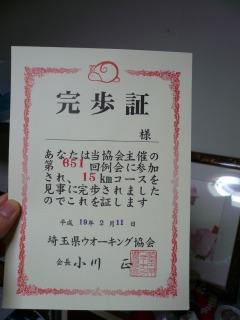 完歩証
様
あなたは当協会主催の
第651回例会に参加
され、15kmコースを
見事に完歩されました
のでこれを証します
平成 19年 2月 11日
埼玉県ウオーキング協会
会長 小川 正